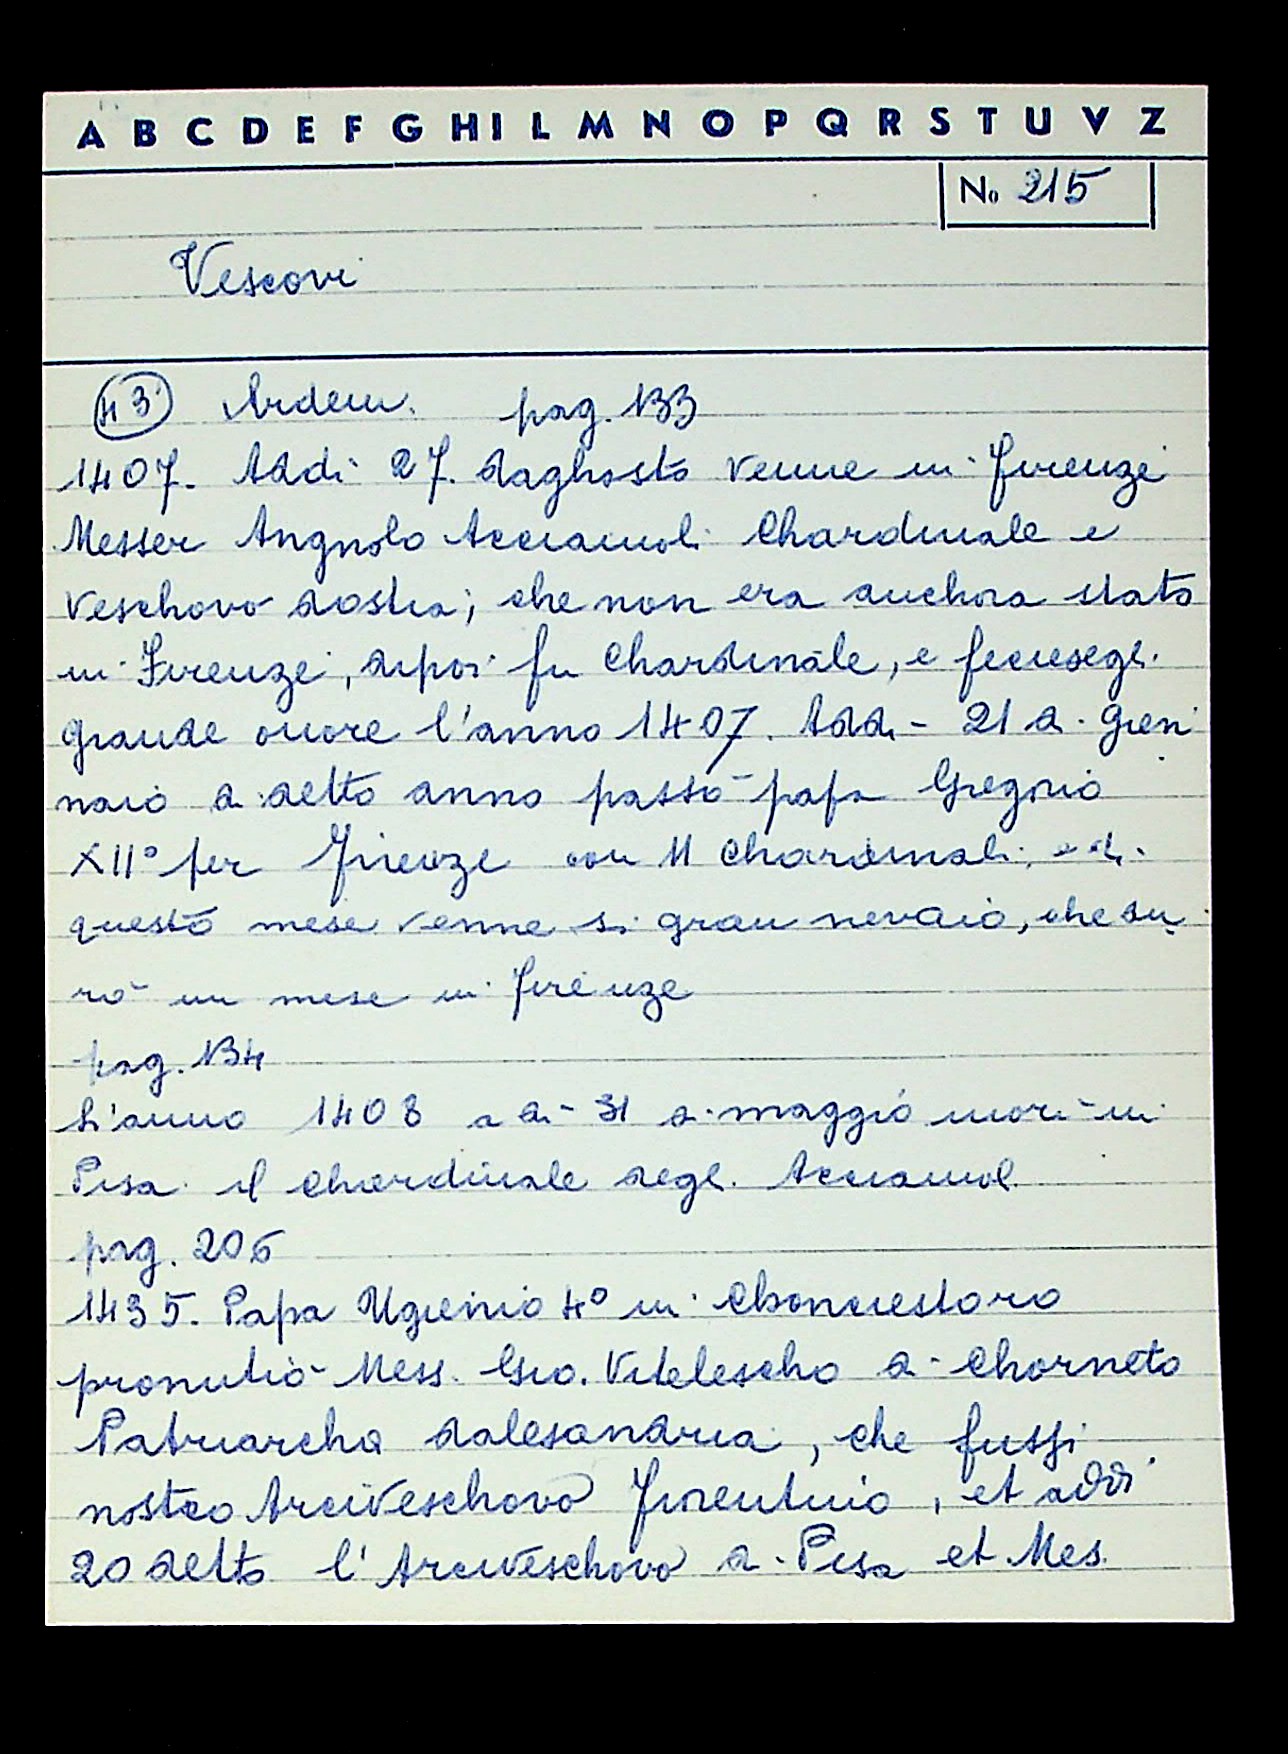 A B C D E F G H I L M N O P Q R S T U V Z
No 215
Vescovi
43 Ardem. pag. 133
1407. Addi 27. daghosto venne in Firenze
Messer Angnolo Acciaiuoli Chardinale e
veschovo dostia; che non era anchora stato
in Firenze, dipoi fu Chardinale, e feciesegli
grande onore l'anno 1407. Addi - 21 di Gien
naio di detto anno passò papa Gregorio
XII° per Firenze con 11 Chardinali, e di
questo mese venne si gran nevaio, che du
rò un mese in Firenze
pag. 134
L'anno 1408 a di - 31 di maggio morì in
Pisa il chardinale degli Acciaiuol
pag. 206
1435. Papa Ugienio 4° in Choncestoro
pronutiò Mess. Gio. Vitelescho di Chorneto
Patriarcha dalesandria, che fussi
nostro Arciveschovo Fiorentino, et addi
20 detto l'Arciveschovo di Pisa et Mes.